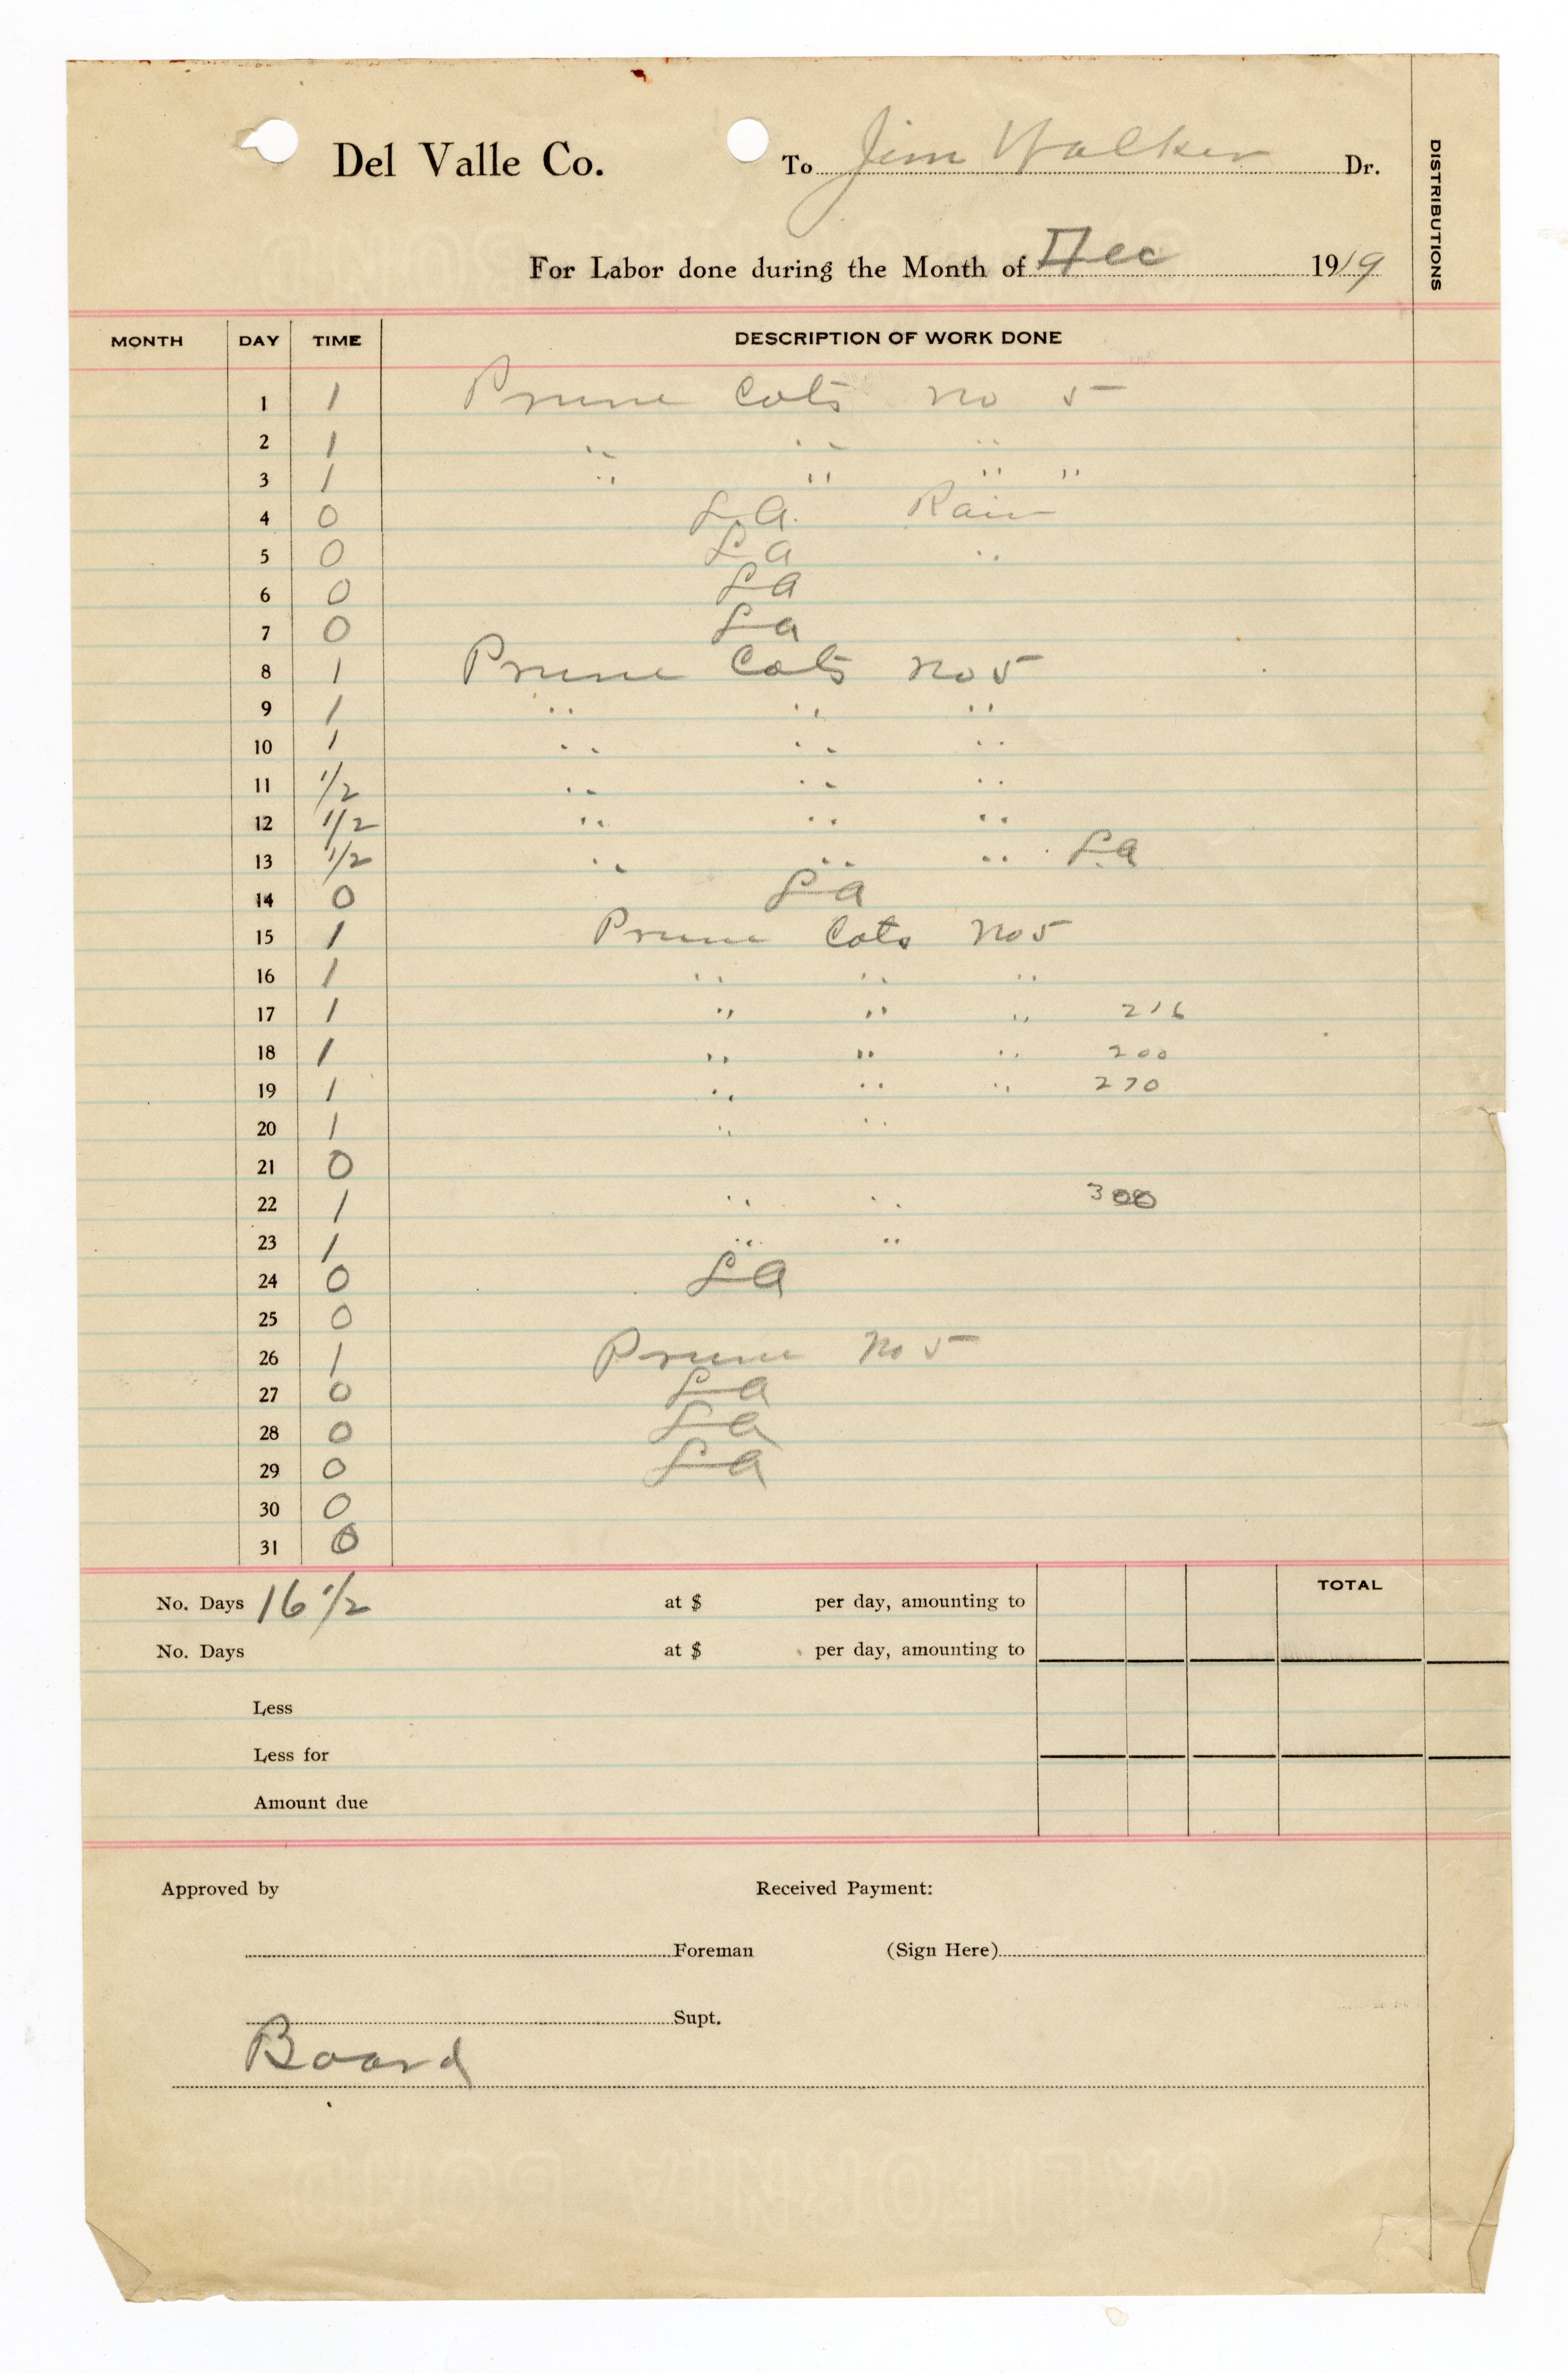 Del Valle Co. To Jim Walker Dr.
DISTRIBUTIONS
For Labor done during the Month of Dec 1919
MONTH DAY TIME DESCRIPTION OF WORK DONE
1 1 Prune Cots No 5
2 1 " " "
3 1 " " " "
4 0 L.A. Rain
5 0 LA "
6 0 LA
7 0 La
8 1 Prune Cots No 5
9 1 " " "
10 1 " " "
11 1/2 " " "
12 1/2 " " "
13 1/2 " " " L.a
14 0 La
15 1 Prune Cots No 5
16 1 " " "
17 1 " " " 216
18 1 " " " 200
19 1 " " " 270
20 1 " "
21 0
22 1 " " 300
23 1 " "
24 0 LA
25 0
26 1 Prune No 5
27 0 La
28 0 La
29 0 La
30 0
31 0
TOTAL
No. Days 16 1/2 at $ per day, amounting to
No. Days at $ per day, amounting to
Less
Less for
Amount due
Approved by Received Payment:
Foreman (Sign Here)
Supt.
Board
CALIFORNIA BOND